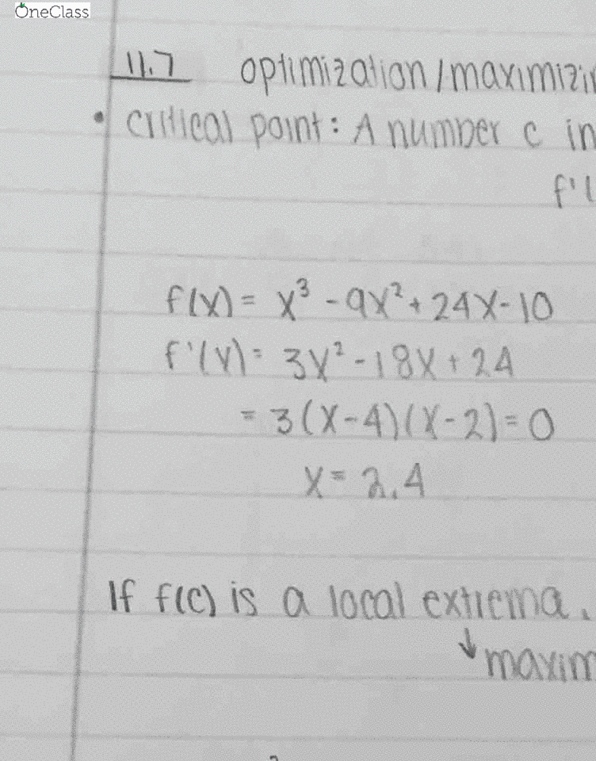 OneClass
11.7 optimization/maximizin
• critical point: A number c in
f'(
f(x) = x³ - 9x² + 24x - 10
f'(x) = 3x² - 18x + 24
= 3(x-4)(x-2) = 0
x = 2,4
If f(c) is a local extrema,
↓ maxim